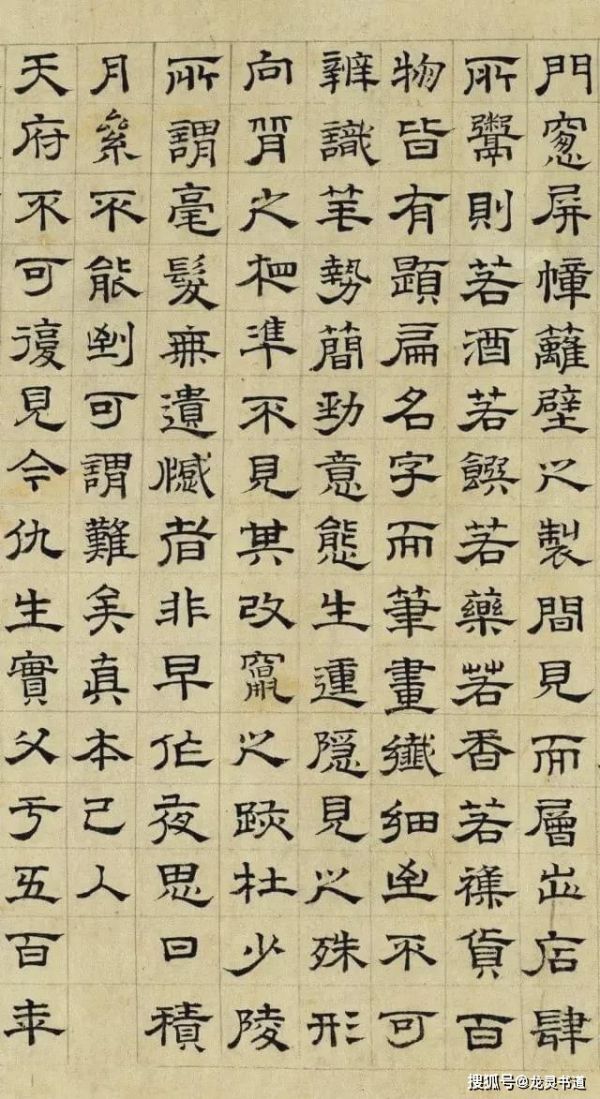 門窻屏幛籬壁之製間見而層出店肆
所鬻則若酒若饌若藥若香若襍貨百
物皆有題扁名字而筆畫纖細至不可
辨識笔勢簡勁意態生運隱見之殊形
向背之準不見其改竄之跡杜少陵
所謂毫髮無遺憾者非早作夜思日積
月絫不能到可謂難矣真本已入
天府不可復見今仇生實父亏五百年
搜狐号@龙灵书道